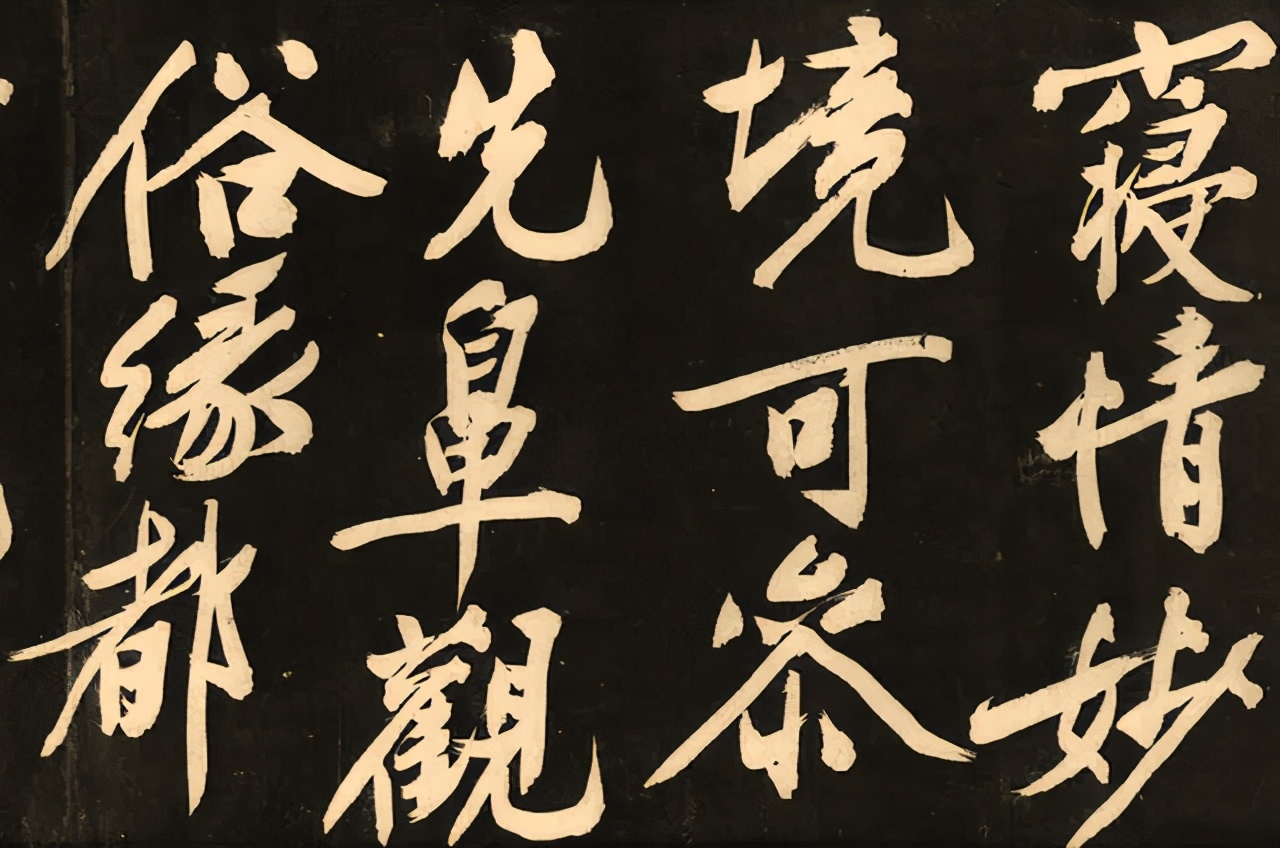 寢情妙
境可參
先阜觀
俗緣都